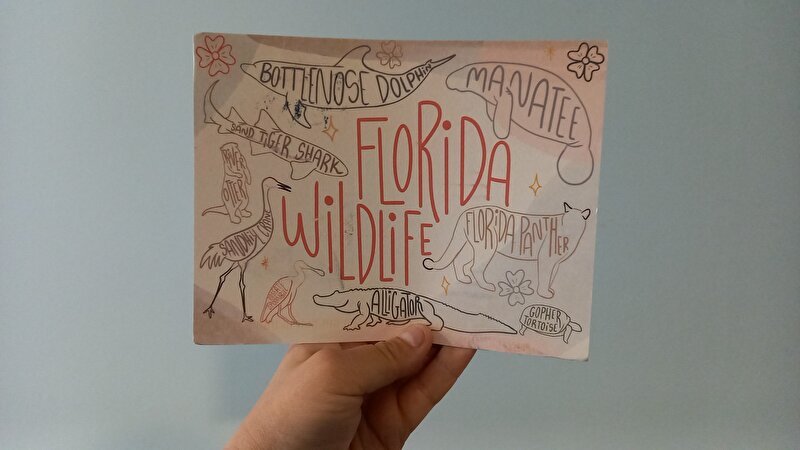 BOTTLENOSE DOLPHIN
MANATEE
SAND TIGER SHARK
FLORIDA
WILDLIFE
RIVER
OTTER
SANDHILL CRANE
FLORIDA PANTHER
ALLIGATOR
GOPHER
TORTOISE